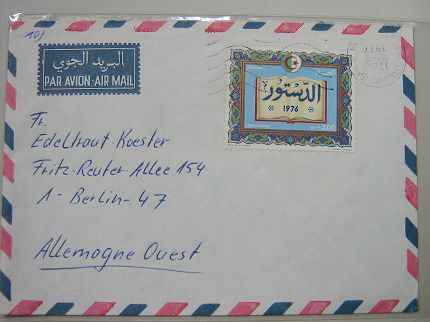 10)
البريد الجوي
PAR AVION-AIR MAIL
الجزائر
الدستور
1976
1977
Fr.
Edeltraut Koester
Fritz-Reuter Allee 154
1-Berlin-47
Allemagne Ouest